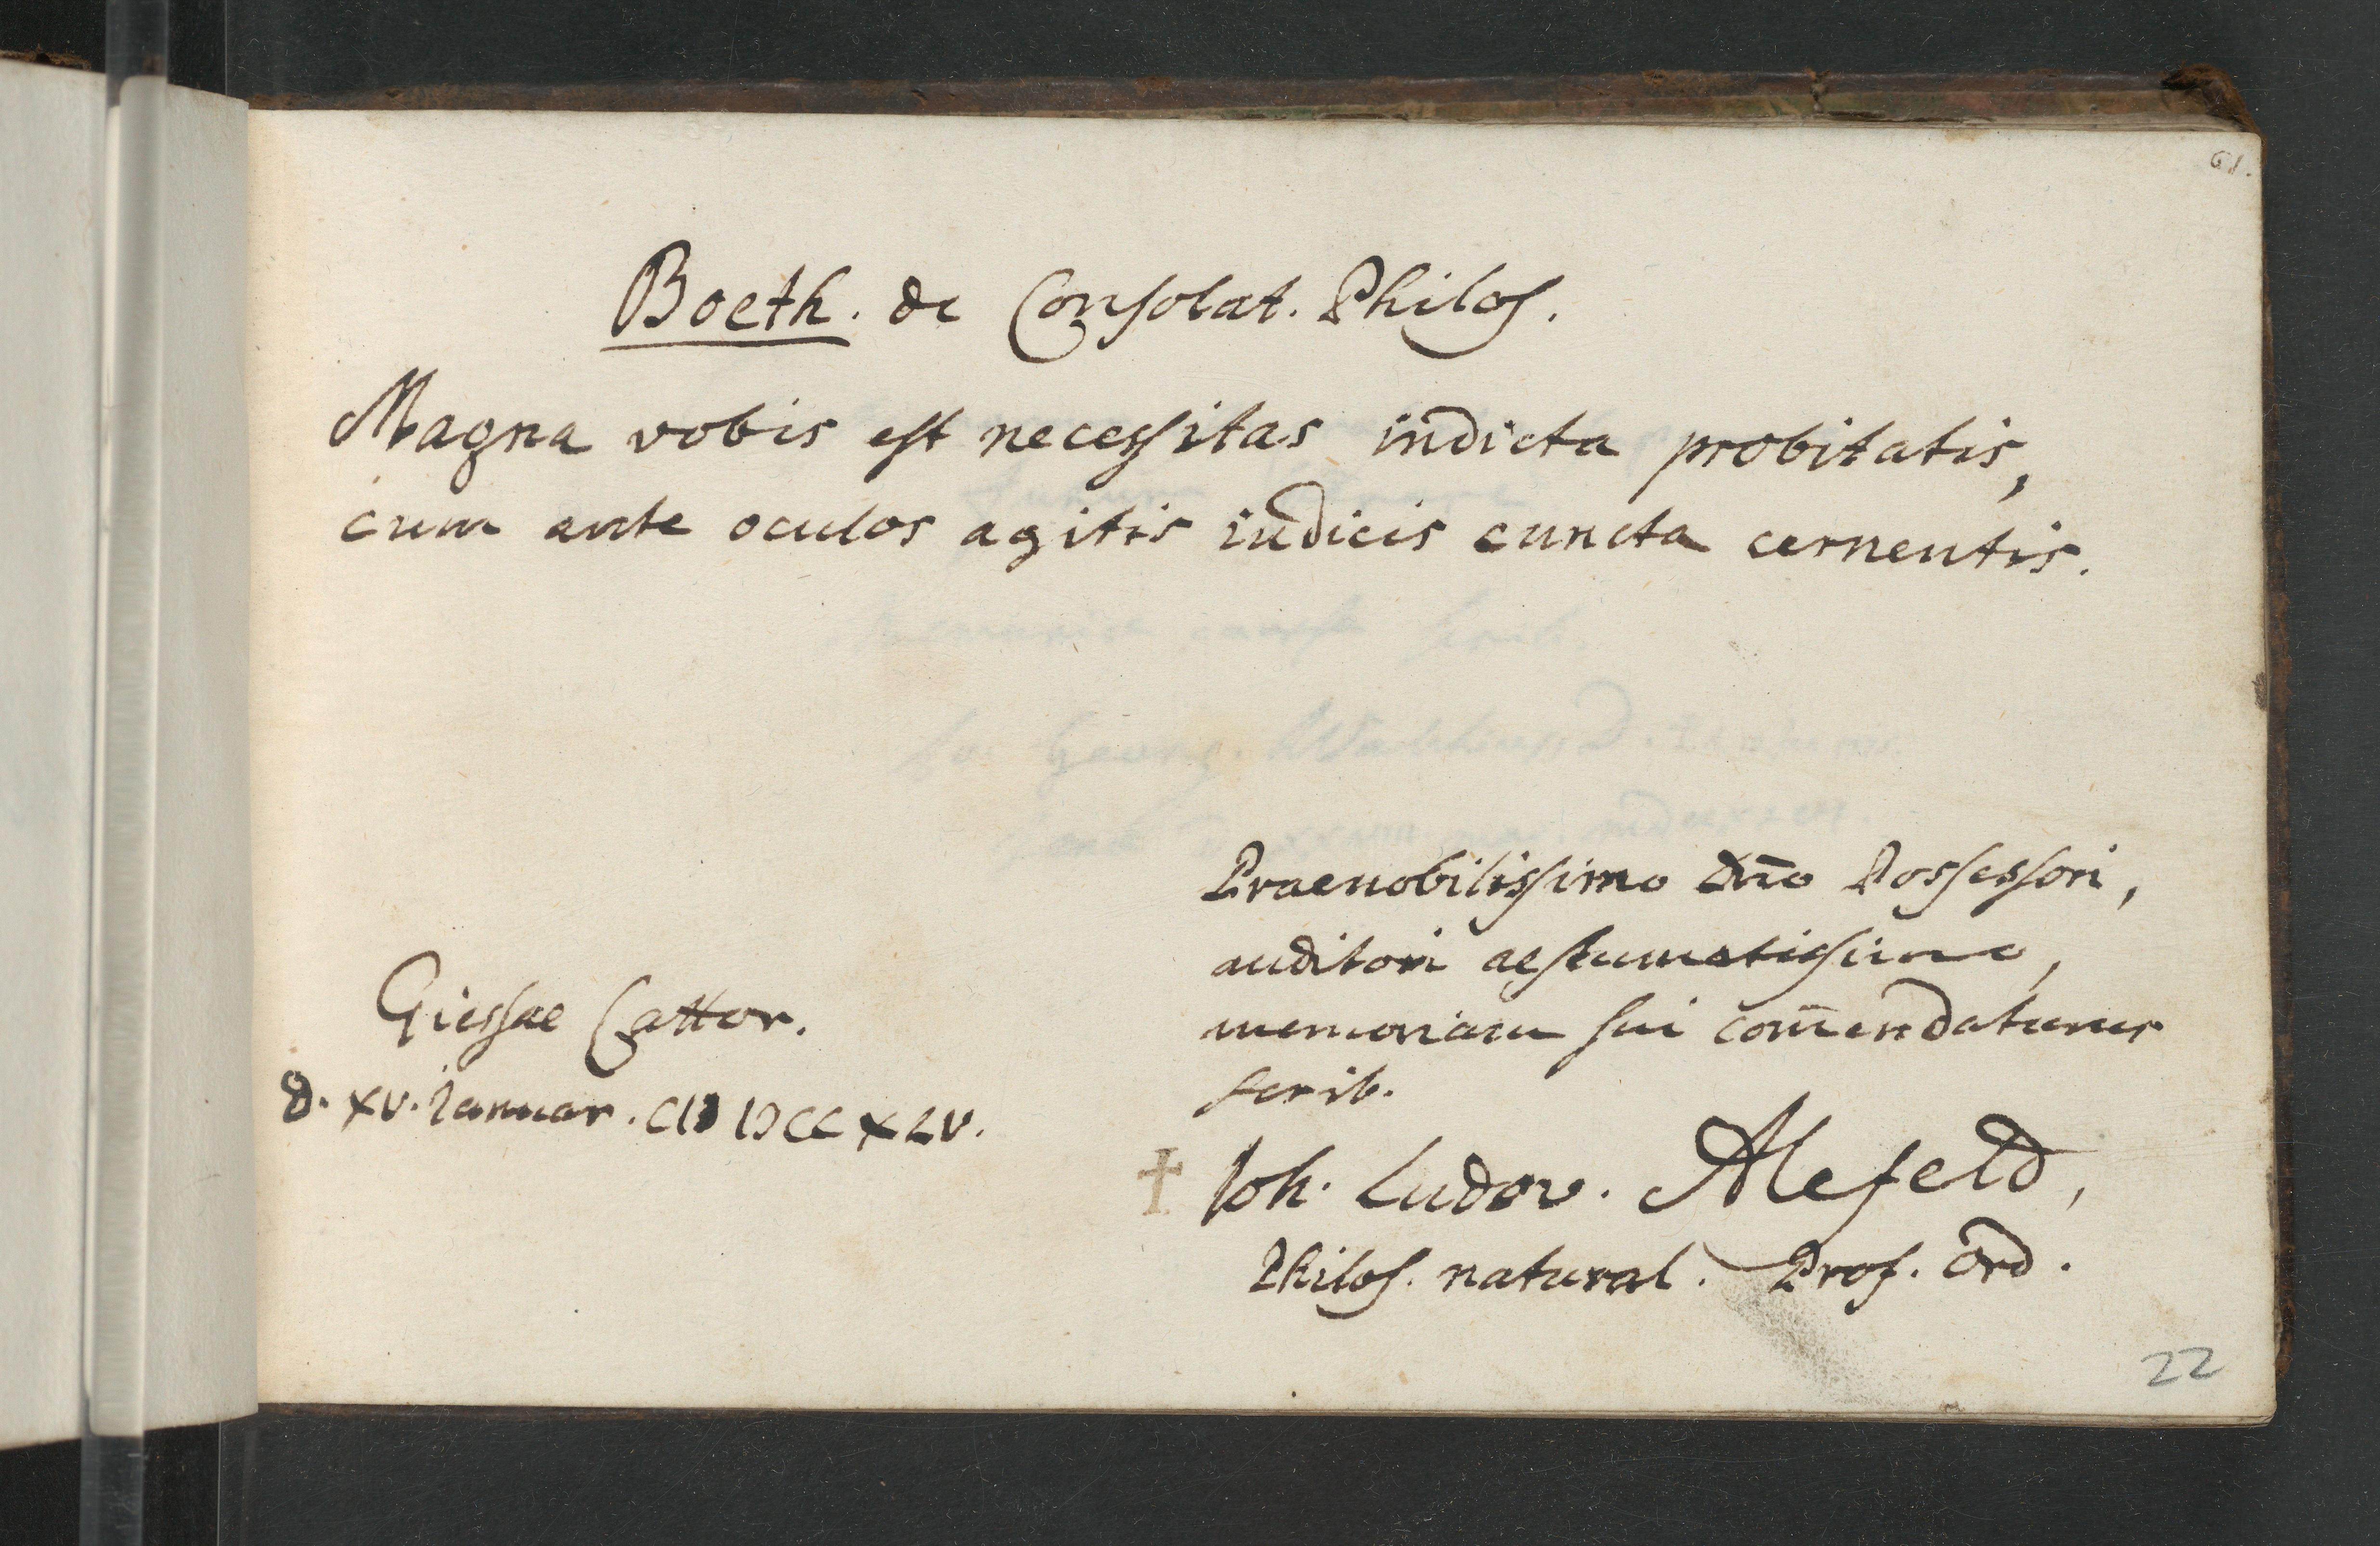 61.
Boeth. de Consolat. Philos.
Magna vobis est necessitas indicta probitatis,
cum ante oculos agitis iudicis cuncta cernentis.
Praenobilissimo Dn̄o Possessori,
auditori aestumatissimo,
memoriam sui com̄endaturus
scrib.
Giessae Cattor.
d. XV. Ianuar. CIↃ IↃ CC XLV.
† Joh. Ludov. Alefeld,
Philos. natural. Prof. Ord.
22